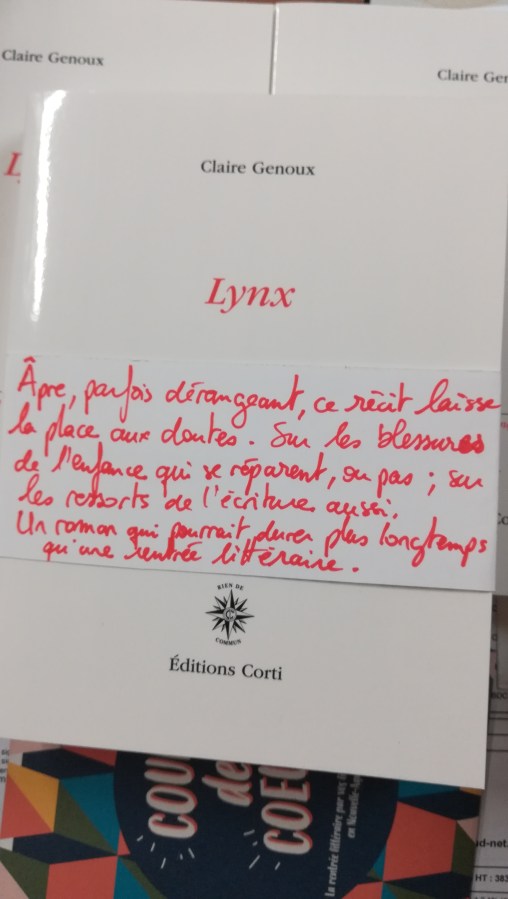 Claire Genoux
Claire Ge
L
Claire Genoux
Lynx
Âpre, parfois dérangeant, ce récit laisse
la place aux doutes. Sur les blessures
de l'enfance qui se réparent, ou pas ; sur
les ressorts de l'écriture aussi.
Un roman qui pourrait durer plus longtemps
qu'une rentrée littéraire.
RIEN DE
COMMUN
Éditions Corti
COU
de
COEU
La rentrée littéraire par vos
en Nouvelle-
id-net.
HT : 383